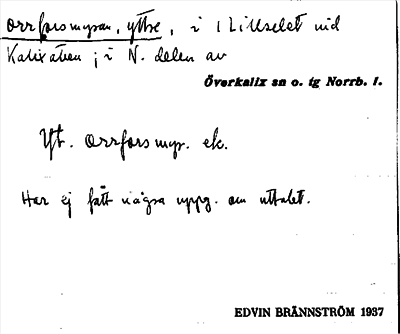 Orrforsmyran, yttre, i Lillselet vid
Kalixälven; i N. delen av
Överkalix sn o. tg Norrb. l.
Yt. Orrforsmyr. ek.
Har ej fått några uppg. om uttalet.
EDVIN BRÄNNSTRÖM 1937